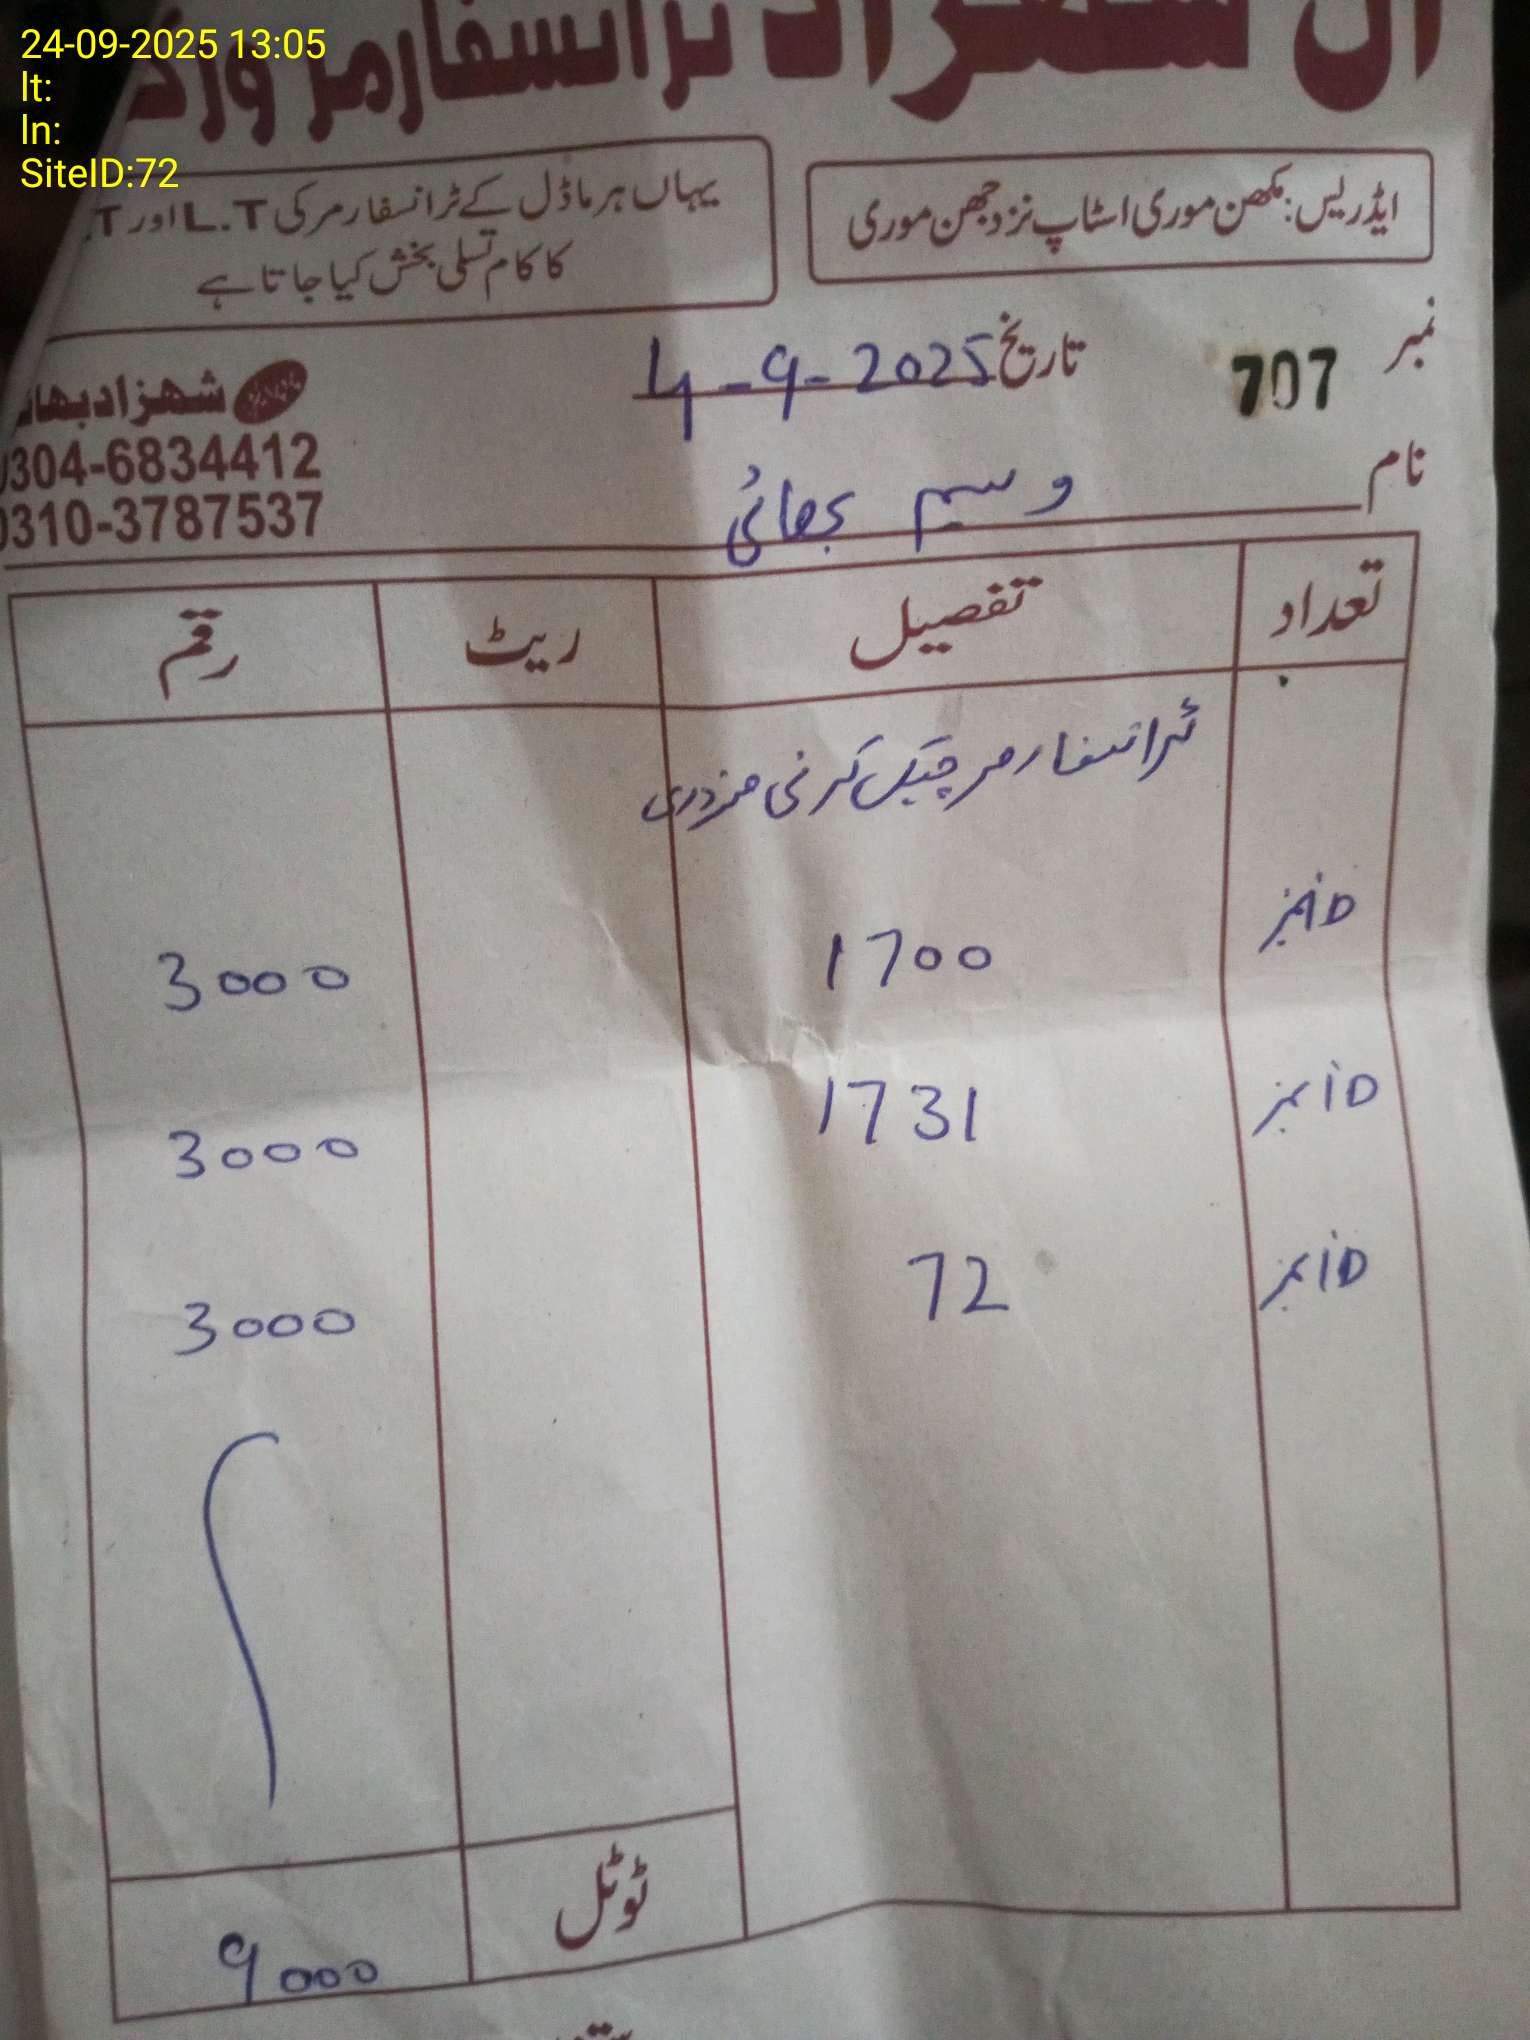 24-09-2025 13:05
lt:
ln:
SiteID:72
ال شہزاد ٹرانسفارمر ورکس
ایڈریس: مکھن موری اسٹاپ نزد جھن موری
یہاں ہر ماڈل کے ٹرانسفارمر کی L.T اور T.
کا کام تسلی بخش کیا جاتا ہے
نمبر 707
تاریخ 4-9-2025
شہزاد بھائی
0304-6834412
0310-3787537
نام وسیم بھائی
تعداد تفصیل ریٹ رقم
ٹرانسفارمر چیک کرنی مزدوری
ID نمبر 1700 3000
ID نمبر 1731 3000
ID نمبر 72 3000
ٹوٹل 9000